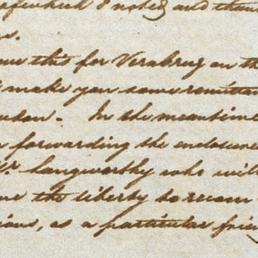 which I noted and than
me this for Verabruz on th
I make you some remittan
London. In the meantime
forwarding the enclosure
Mr. Langworthy who will
me the liberty to recom
as a particular frien